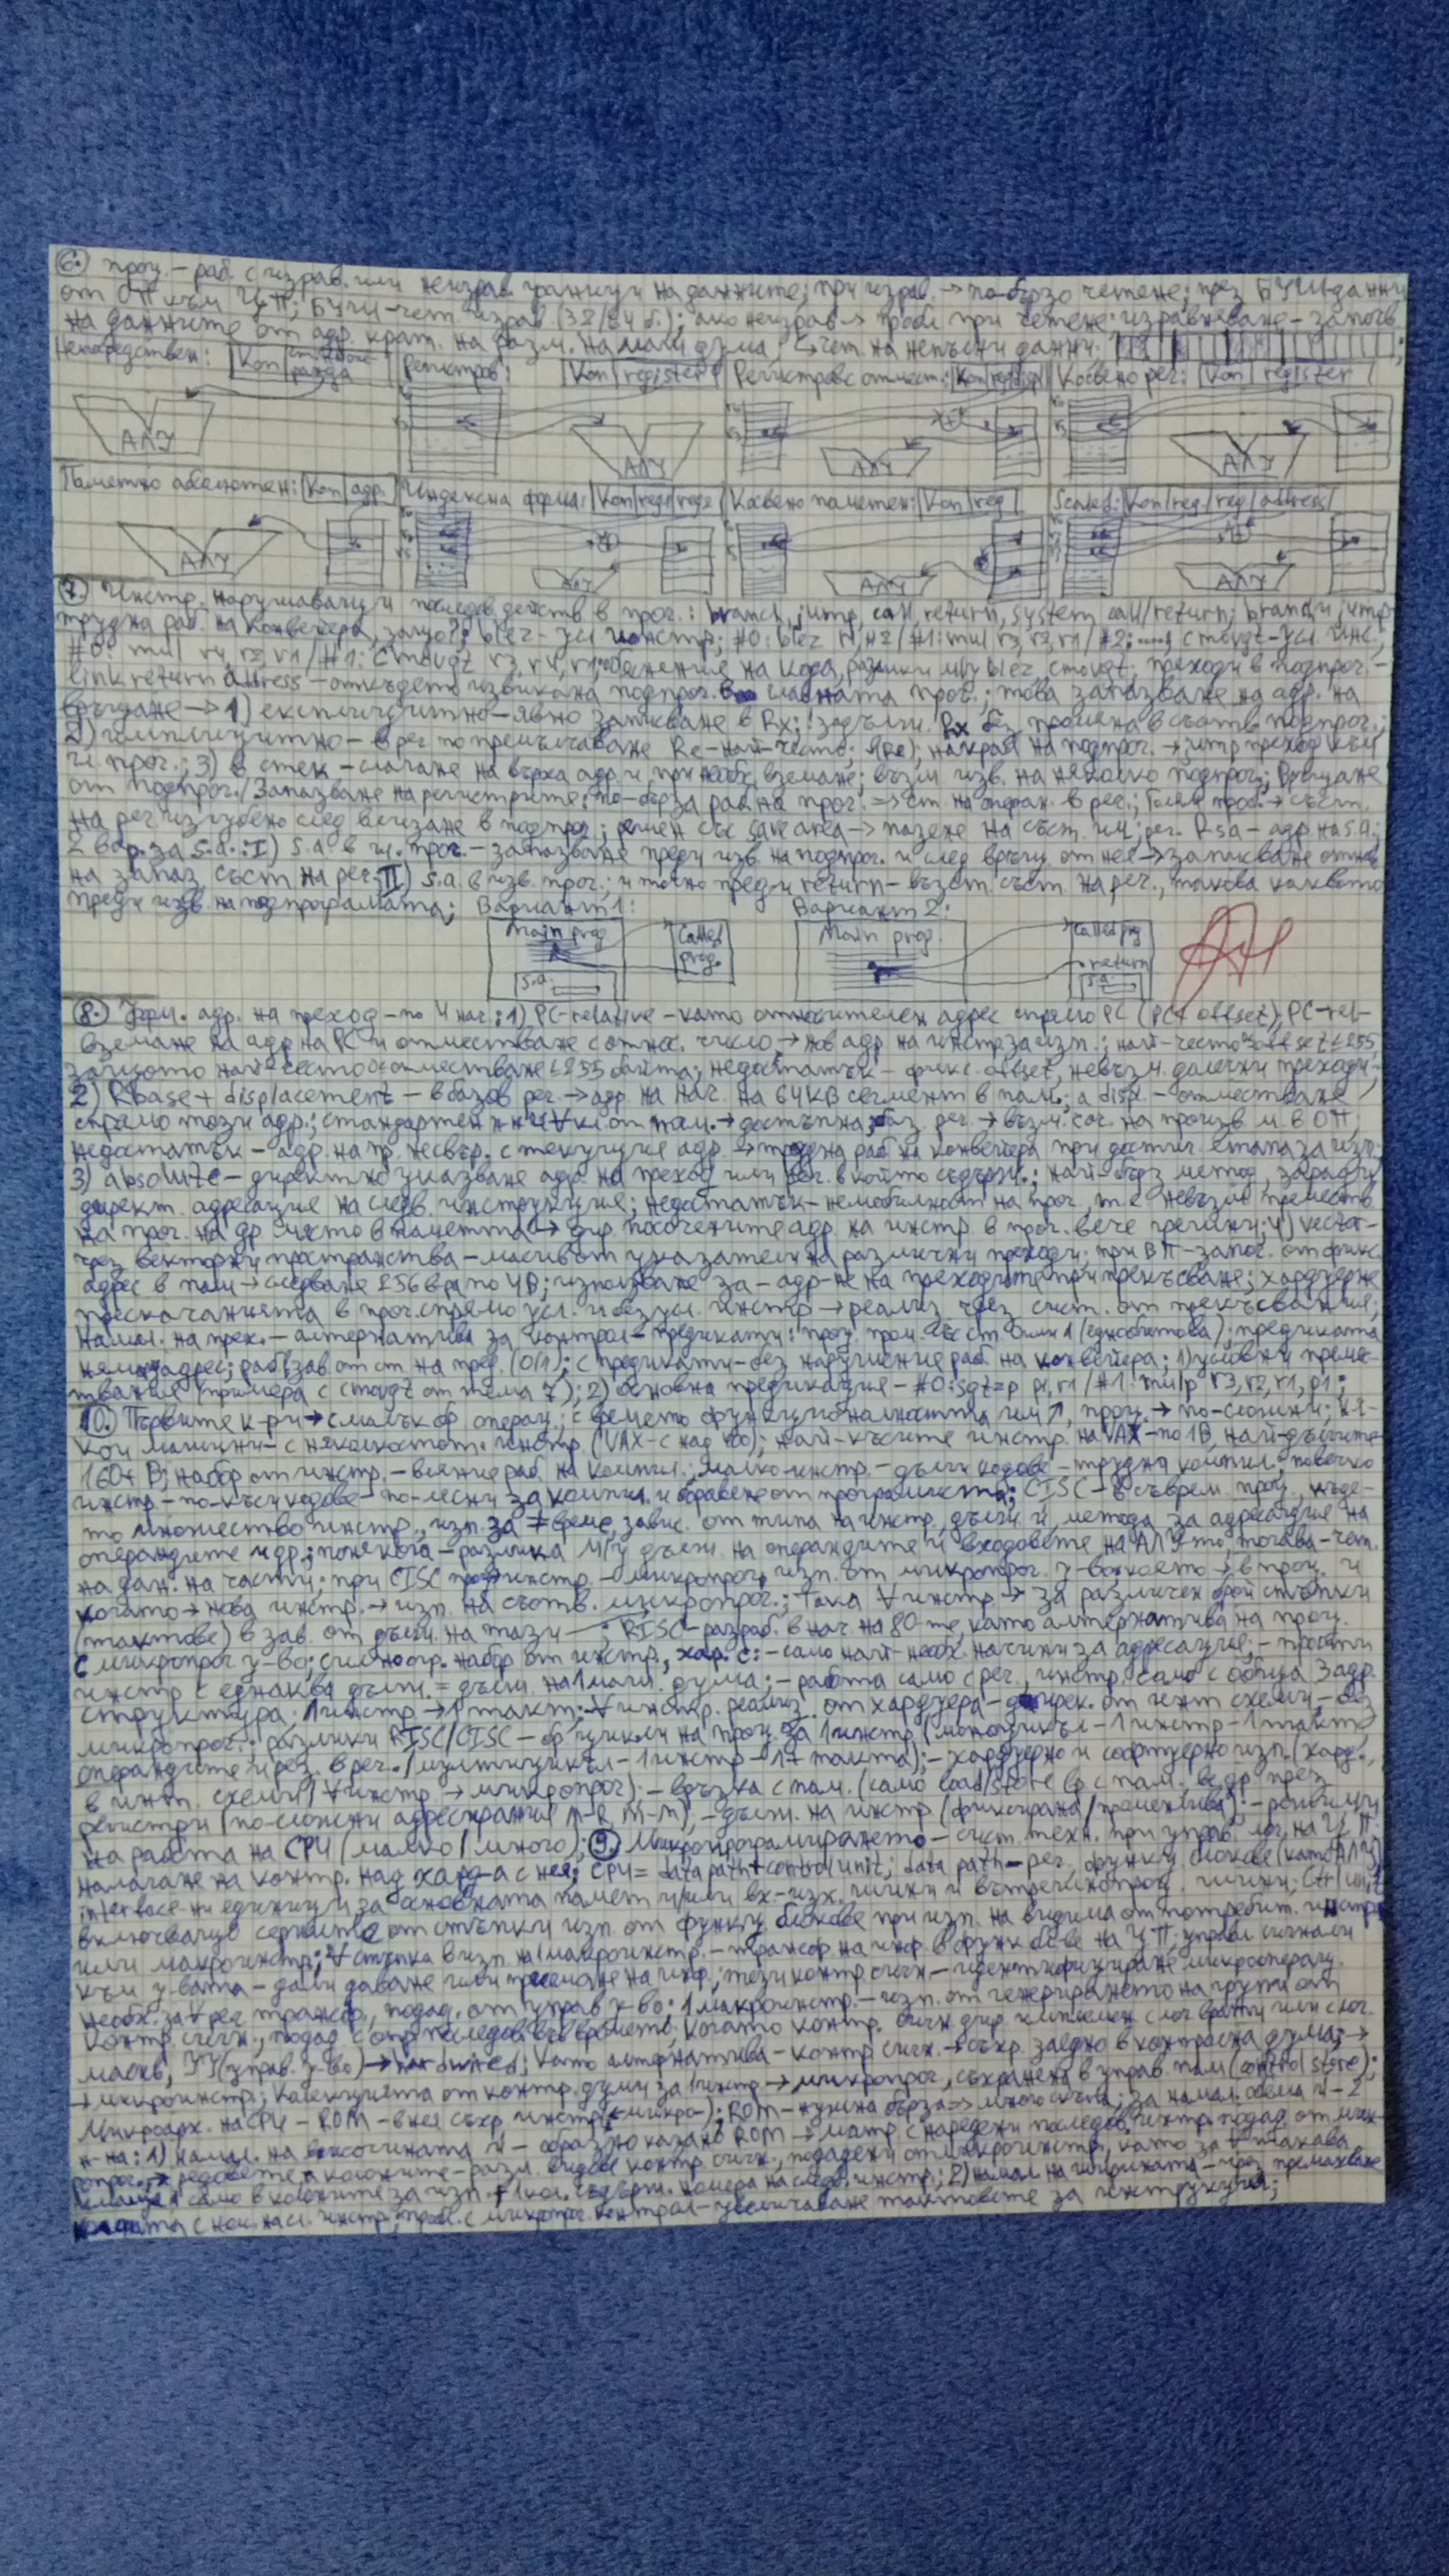 6. проц. – раб. с израв. или неизрав. граници на данните; при израв. → по-бързо четене; през БУЧИ данни
от ОП към ЦП; БУЧИ – чет. израв. (32/64 б.); ако неизрав. → пробл. при четене; изравняване – започв.
на данните от адр. крат. на разм. на маш. дума; чет. на непълни данни:
Непосредствен: Коп
Регистров: Коп register
Регистров с отмест.: Коп
Косвено рег.: Коп register
АЛУ
АЛУ
АЛУ
АЛУ
Паметно абсолютен: Коп адр.
Индексна форма: Коп reg1 reg2
Косвено паметен: Коп reg
Scaled: Коп reg reg address
АЛУ
АЛУ
АЛУ
АЛУ
7. Инстр. нарушаващи последов. действ. в прог.: branch, jump, call, return, system call/return; branch и jump
трудна раб. на конвейера, защо?; blez – усл. инстр.; #0: blez r1, #2 / #1: mul r3, r2, r1 / #2: ....; cmovgt – усл. инс.;
#0: mul r4, r2, r1 / #1: cmovgt r3, r4, r1; обяснения на кода, разлики м/у blez, cmovgt; преходи в подпрог. –
link return address – откъдето извикана подпрог. в главната прог.; това запазване на адр. на
връщане → 1) експлицитно – явно записване в Rx; задълж. Rx без промяна в съотв. подпрог.;
2) имплицитно – в рег. по премълчаване Re – най-често; накрая на подпрог. → jump преход към
гл. прог.; 3) в стек – слагане на върха адр. и при необх. вземане; възм. изв. на няколко подпрог.; Връщане
от подпрог. / Запазване на регистрите; по-бърза раб. на прог. => ст. на операн. в рег.; Голям пробл. → съст.
на рег. изгубено след влизане в подпрог.; решен със save area → пазене на съст. им; рег. Rsa – адр. на s.a.;
2 вар. за s.a.: I) s.a. в гл. прог. – запазване преди изв. на подпрог. и след връщ. от нея → записване отнов.
на запаз. съст. на рег.; II) s.a. в изв. прог.; и точно преди return – възст. съст. на рег., такова каквото
преди изв. на подпрограмата; Вариант 1: Вариант 2:
Main prog.
Called prog.
s.a.
Main prog.
Called prg
return
s.a.
8. Фрм. адр. на преход – по 4 нач.: 1) PC-relative – като относителен адрес спрямо PC (PC + offset); PC-rel –
вземане на адр. на PC и отместване с относ. число → нов адр. на инстр. за изп.; най-често offset ≤ 255,
защото най-често отместване ≤ 255 байта; недостатък – фикс. offset, невъзм. далечни преходи;
2) Rbase + displacement – в базов рег. → адр. на нач. на 64KB сегмент в пам.; а disp. – отместване
спрямо този адр.; стандартен ∀ кл. от пам. → достъпна; баз. рег. → възм. соч. на произв. м. в ОП;
недостатък – адр. на пр. несвър. с текущия адр. → трудна раб. на конвейера при достиг. етапа за изп.
3) absolute – директно указване адр. на преход или рег. в който съдърж.; най-бърз метод, заради
директ. адресация на следв. инструкция; недостатък – немобилност на прог., т.е. невъзм. преместв.
на прог. на др. място в паметта → дир. посочените адр. на инстр. в прог. вече грешни; 4)
чрез векторни пространства – масив от указатели на различни преходи; при ВП – започ. от фикс.
адрес в пам. → следване 256 вр. по 4B; използване за – адр-не на преходите при прекъсване; хардуерно
прескачанията в прог. спрямо усл. и безусл. инстр. → реализ. чрез сист. от прекъсвания;
намал. на прек. – алтернатива за контрол – предикати: проц. пром. със ст. 0 или 1 (еднобитова); предиката
няма адрес; раб. зав. от ст. на пред. (0/1); с предикати – без нарушение раб. на конвейера; 1) условни преме-
ствания (примера с cmovgt от тема 7); 2) основна предикация – #0: sgt=p p1, r1 / #1: mulp r3, r2, r1, p1;
10. Първите к-ри → с малък бр. операц.; с времето функционалността им ↑, проц. → по-сложни; ня-
кои машини – с няколкостот. инстр. (VAX – с над 400); най-късите инстр. на VAX – по 1B, най-дългите –
160+ B; набор от инстр. – влияние раб. на компил.; малко инстр. – дълги кодове – трудна компил.; повечко
инстр. – по-къси кодове – по-лесни за компил. и боравене от програмиста; CISC – в съврем. проц., къде-
то множество инстр., изп. за ≠ време, завис. от типа на инстр., дълж. и, метода за адресация на
операндите и др.; понякога – разлика м/у дълж. на операндите и входовете на АЛУ-то, тогава – чет.
на дан. на части; при CISC проц. инстр. – микропрог., изп. от микропрог. у-во, което → в проц. и
когато → нова инстр. → изп. на съотв. микропрог.; така ∀ инстр. → за различен брой стъпки
(тактове) в зав. от дълж. на тази; RISC – разраб. в нач. на 80-те, като алтернатива на проц.
с микропрог. у-во; силно огр. набор от инстр., хар. с: – само най-необх. начини за адресация; – прости
инстр. с еднаква дълж. = дълж. на 1 маш. дума; – работа само с рег., инстр. само с обща 3 адр.
структура; 1 инстр. → 1 такт; ∀ инстр. реализ. от хардуера – дирек. от инт. схеми, – без
микропрог.; разлики RISC/CISC – бр. цикли на проц. за 1 инстр. (моноцикъл – 1 инстр. – 1 такт –
операндите и рез. в рег. / мултицикъл – 1 инстр. – 1+ такта); – хардуерно и софтуерно изп. (хард.,
в инт. схеми / ∀ инстр. → микропрог.); – връзка с пам. (само load/store вр. с пам., вс. др. през
регистри / по-сложни адресирания), – дълж. на инстр. (фиксирана / променлива); – режими
на работа на CPU (малко / много); 9. Микропрограмирането – сист. техн. при управ. лог. на ЦП;
налагане на контр. над хард-а с нея; CPU = data path + control unit; data path – рег., функц. блокове (като АЛУ),
interface-ни единици за основната памет и/или вх.-изх. шини и вътрешнопроц. шини; Ctrl unit
включващо сериите от стъпки изп. от функц. блокове при изп. на видима от потребит. инстр.
или макроинстр.; ∀ стъпка в изп. на макроинстр. – трансф. на инф. в функ. бл-ве на ЦП; управл. сигнали
към у-вата – дали даване или приемане на инф.; тези контр. сигн. – идентифициране микрооперац.
необх. за ∀ рег. трансф., подад. от управ. у-во; 1 макроинстр. – изп. от генерирането на групи от
контр. сигн., подад. с опр. последов. във времето; когато контр. сигн. дир. с лог. врати или с лог.
масив, УУ (управ. у-во) → hardwired; Като алтернатива – контр. сигн. → съхр. заедно в контролна дума; →
→ микроинстр.; Колекцията от контр. думи за 1 инстр. → микропрог., съхранена в управ. пам. (control store);
Микроарх. на CPU – ROM – в нея съхр. инстр. (микро-); ROM – нужна бърза => много скъпа; за намал. обема и – 2
н-на: 1) намал. на височината и – образно казано ROM → матр. с наредени последов. инстр. подад. от мик-
ропрог. → редовете, а колоните – разл. видове контр. сигн., подадени от микроинстр., като за ∀ такава
само в колоните за изп. + 1 кол. съдърж. номера на следв. инстр.; 2) намал. на ширината – чрез премахване
с ном. на сл. инстр.; пробл. с микропрог. контрол – увеличаване тактовете за инструкция;